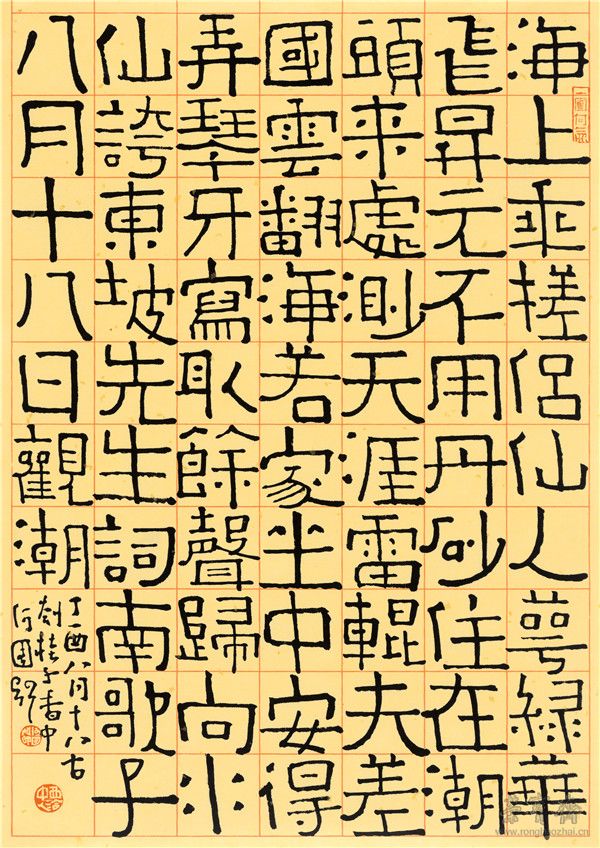 海上乘槎侶仙人萼綠華
飛昇元不用丹砂住在潮
頭来處渺天涯雷輥夫差
國雲翻海若家坐中安得
弄琴牙寫取餘聲歸向水
仙誇東坡先生詞南歌子
八月十八日觀潮
丁酉八月十八古
刹桂子香中
荣宝斋
www.rongbaozhai.cn